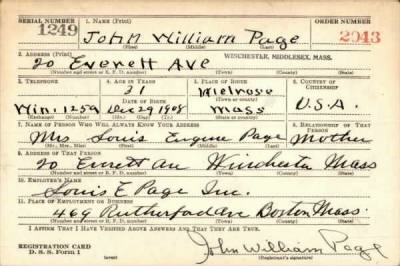 SERIAL NUMBER 1. NAME (Print) ORDER NUMBER
1249 John William Page 2943
(First) (Middle) (Last)
2. ADDRESS (Print)
20 Everett Ave WINCHESTER, MIDDLESEX, MASS.
(Number and street or R. F. D. number) (Town) (County) (State)
3. TELEPHONE 4. AGE IN YEARS 5. PLACE OF BIRTH 6. COUNTRY OF CITIZENSHIP
31 Melrose
DATE OF BIRTH (Town or county)
Win. 1259 Dec 29 1908 Mass U.S.A.
(Exchange) (Number) (Mo.) (Day) (Yr.) (State or country)
7. NAME OF PERSON WHO WILL ALWAYS KNOW YOUR ADDRESS 8. RELATIONSHIP OF THAT PERSON
Mrs Louis Eugene Page Mother
(Mr., Mrs., Miss) (First) (Middle) (Last)
9. ADDRESS OF THAT PERSON
20 Everett Ave Winchester Mass
(Number and street or R. F. D. number) (Town) (County) (State)
10. EMPLOYER'S NAME
Louis E Page Inc.
11. PLACE OF EMPLOYMENT OR BUSINESS
469 Rutherford ave Boston Mass.
(Number and street or R. F. D. number) (Town) (County) (State)
I AFFIRM THAT I HAVE VERIFIED ABOVE ANSWERS AND THAT THEY ARE TRUE.
REGISTRATION CARD
D. S. S. Form 1 John William Page
(over) (Registrant's signature)